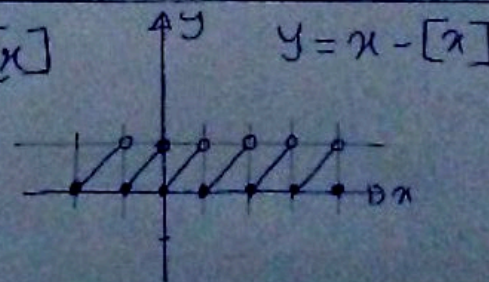 x]
y
y = x - [x]
x